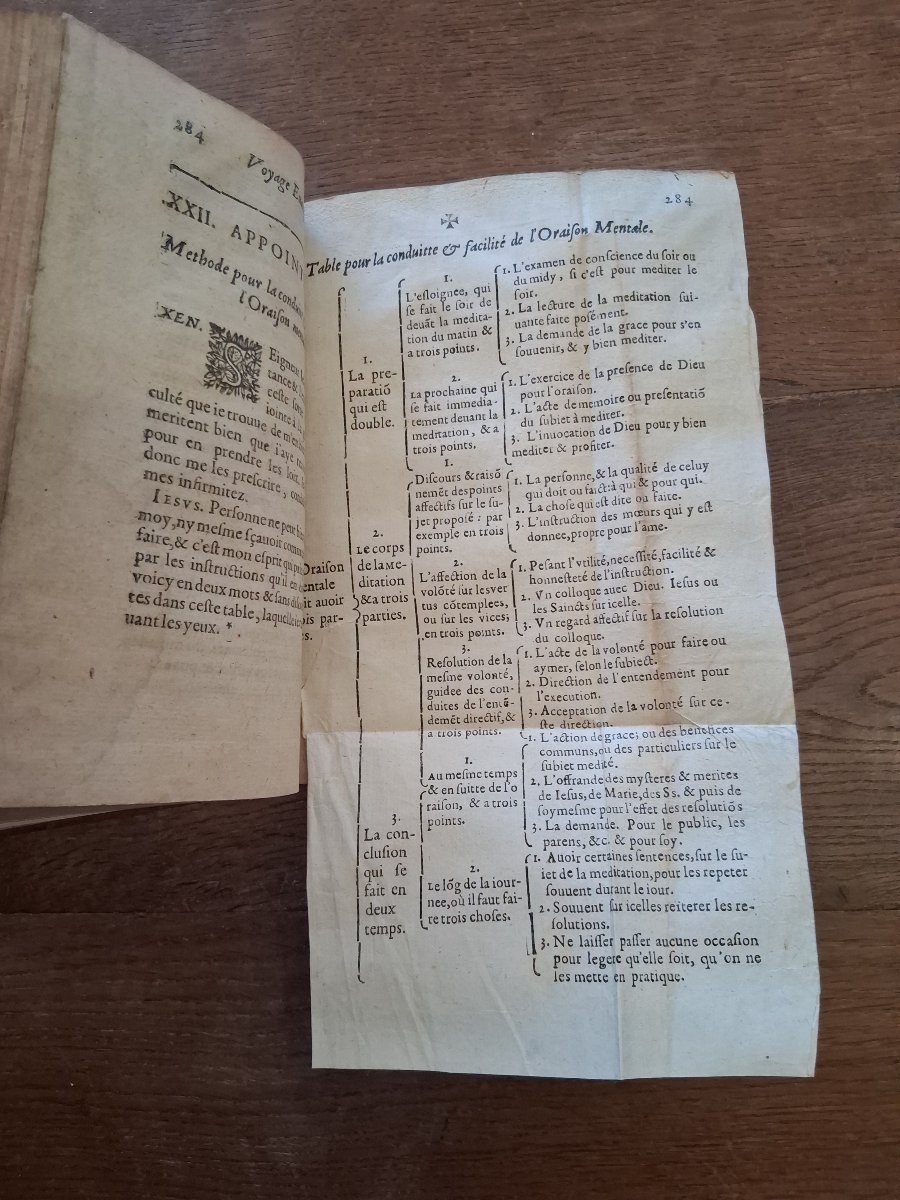 284
Voyage
XXII. APPOIN
Methode pour la condu
l'Oraiſon
XEN.
Eigneur
ceſte
iointe à
culté que ie trouue de m'en
meritent bien que i'aye
pour en prendre les loix.
donc me les preſcrire,
mes infirmitez.
IESVS. Perſonne ne peut
moy, ny meſme ſçauoir
faire, & c'eſt mon eſprit qui
par les inſtructions qu'il
voicy en deux mots & ſans
tes dans ceſte table, laquelle
uant les yeux. *
284
✠
Table pour la conduitte & facilité de l'Oraiſon Mentale.
Oraiſon
entale
it auoir
is par-
s.
1.
La pre-
paratiõ
qui eſt
double.
1.
L'eſloignee, qui
ſe fait le ſoir de
deuãt la medita-
tion du matin &
a trois points.
1. L'examen de conſcience du ſoir ou
du midy, ſi c'eſt pour mediter le
ſoir.
2. La lecture de la meditation ſui-
uante faite poſément.
3. La demande de la grace pour s'en
ſouuenir, & y bien mediter.
2.
La prochaine qui
ſe fait immedia-
tement deuant la
meditation, & a
trois points.
1. L'exercice de la preſence de Dieu
pour l'oraiſon.
2. L'acte de memoire ou preſentatiõ
du ſubiet à mediter.
3. L'inuocation de Dieu pour y bien
mediter & profiter.
2.
Le corps
de la me-
ditation
& a trois
parties.
1.
Diſcours & raiſõ
nemẽt des points
affectifs ſur le ſu-
jet propoſé : par
exemple en trois
points.
1. La personne, & la qualité de celuy
qui doit ou faict: à qui & pour qui.
2. La choſe qui eſt dite ou faite.
3. L'inſtruction des mœurs qui y eſt
donnee, propre pour l'ame.
2.
L'affection de la
volõté ſur les ver
tus cõtemplees,
ou ſur les vices;
en trois points.
1. Peſant l'vtilité, neceſſité, facilité &
honneſteté de l'inſtruction.
2. Vn colloque auec Dieu. Ieſus ou
les Saincts ſur icelle.
3. Vn regard affectif ſur la reſolution
du colloque.
3.
Reſolution de la
meſme volonté,
guidee des con-
duites de l'entẽ-
demẽt directif, &
a trois points.
1. L'acte de la volonté pour faire ou
aymer, ſelon le ſubiect.
2. Direction de l'entendement pour
l'execution.
3. Acceptation de la volonté ſur ce-
ſte direction.
3.
La con-
cluſion
qui ſe
fait en
deux
temps.
1.
Au meſme temps
& en ſuitte de l'o
raiſon, & a trois
points.
1. L'action de grace; ou des benefices
communs, ou des particuliers ſur le
ſubiet medité.
2. L'offrande des myſteres & merites
de Ieſus, de Marie, des Ss. & puis de
ſoy meſme pour l'effet des reſolutiõs
3. La demande. Pour le public, les
parens, &c. & pour ſoy.
2.
Le lõg de la iour-
nee, où il faut fai-
re trois choſes.
1. Auoir certaines ſentences, ſur le ſu-
iet de la meditation, pour les repeter
ſouuent durant le iour.
2. Souuent ſur icelles reïterer les re-
ſolutions.
3. Ne laiſſer paſſer aucune occaſion
pour legere qu'elle ſoit, qu'on ne
les mette en pratique.